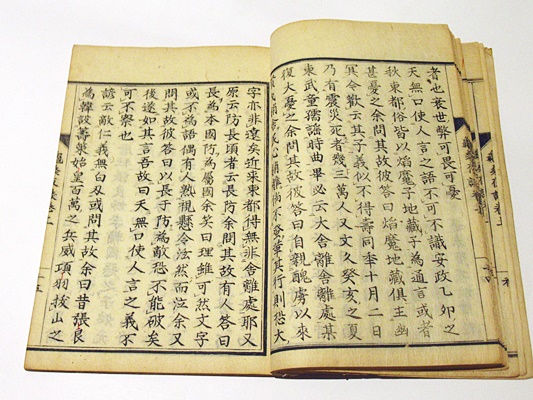 者也衰世弊可畏可憂
天無口使人言之語不可不識安政乙卯之
秋東都俗皆以焰魔子地藏子為通言或者
甚憂之余問其故彼答曰焰魔地藏俱主幽
冥今歡云其子義似不得壽同季十月二日
乃有震災死者幾三萬人又文久癸亥之夏
東武童孺謡時曲畢必云大舎離處某
復大憂之余問其故彼答曰自親醜虜以來
民心離
字亦非遠矣近來東都得無非舎離處耶又
原云防長頃者云長防余問其故有人答曰
長為本國防為屬國余笑曰理維可然文字
或不為語偶有人熱視懸令法然而泣余又
問其故彼答曰以長于防為敵恐不能破矣
後遂如其言吾故曰天無口使人言之義不
可不察也
諺云敵仁義無白刃或問其故余曰昔張良
為韓設籌策始皇百萬之兵威項羽拔山之